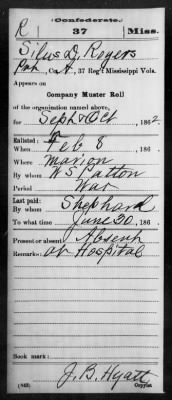 (Confederate.)
R 37 Miss.
Silus D. Rogers
Co. , 37 Reg't Mississippi Vols.
Appears on
Company Muster Roll
of the organization named above,
for Sept & Oct, 1862.
Enlisted:
When Feb 8, 186 .
Where Marion
By whom W S Patton
Period War
Last paid:
By whom Shephard
To what time June 30, 186 .
Present or absent Absent
Remarks: at Hospital
Book mark:
J. B. Hyatt
(642) Copyist.